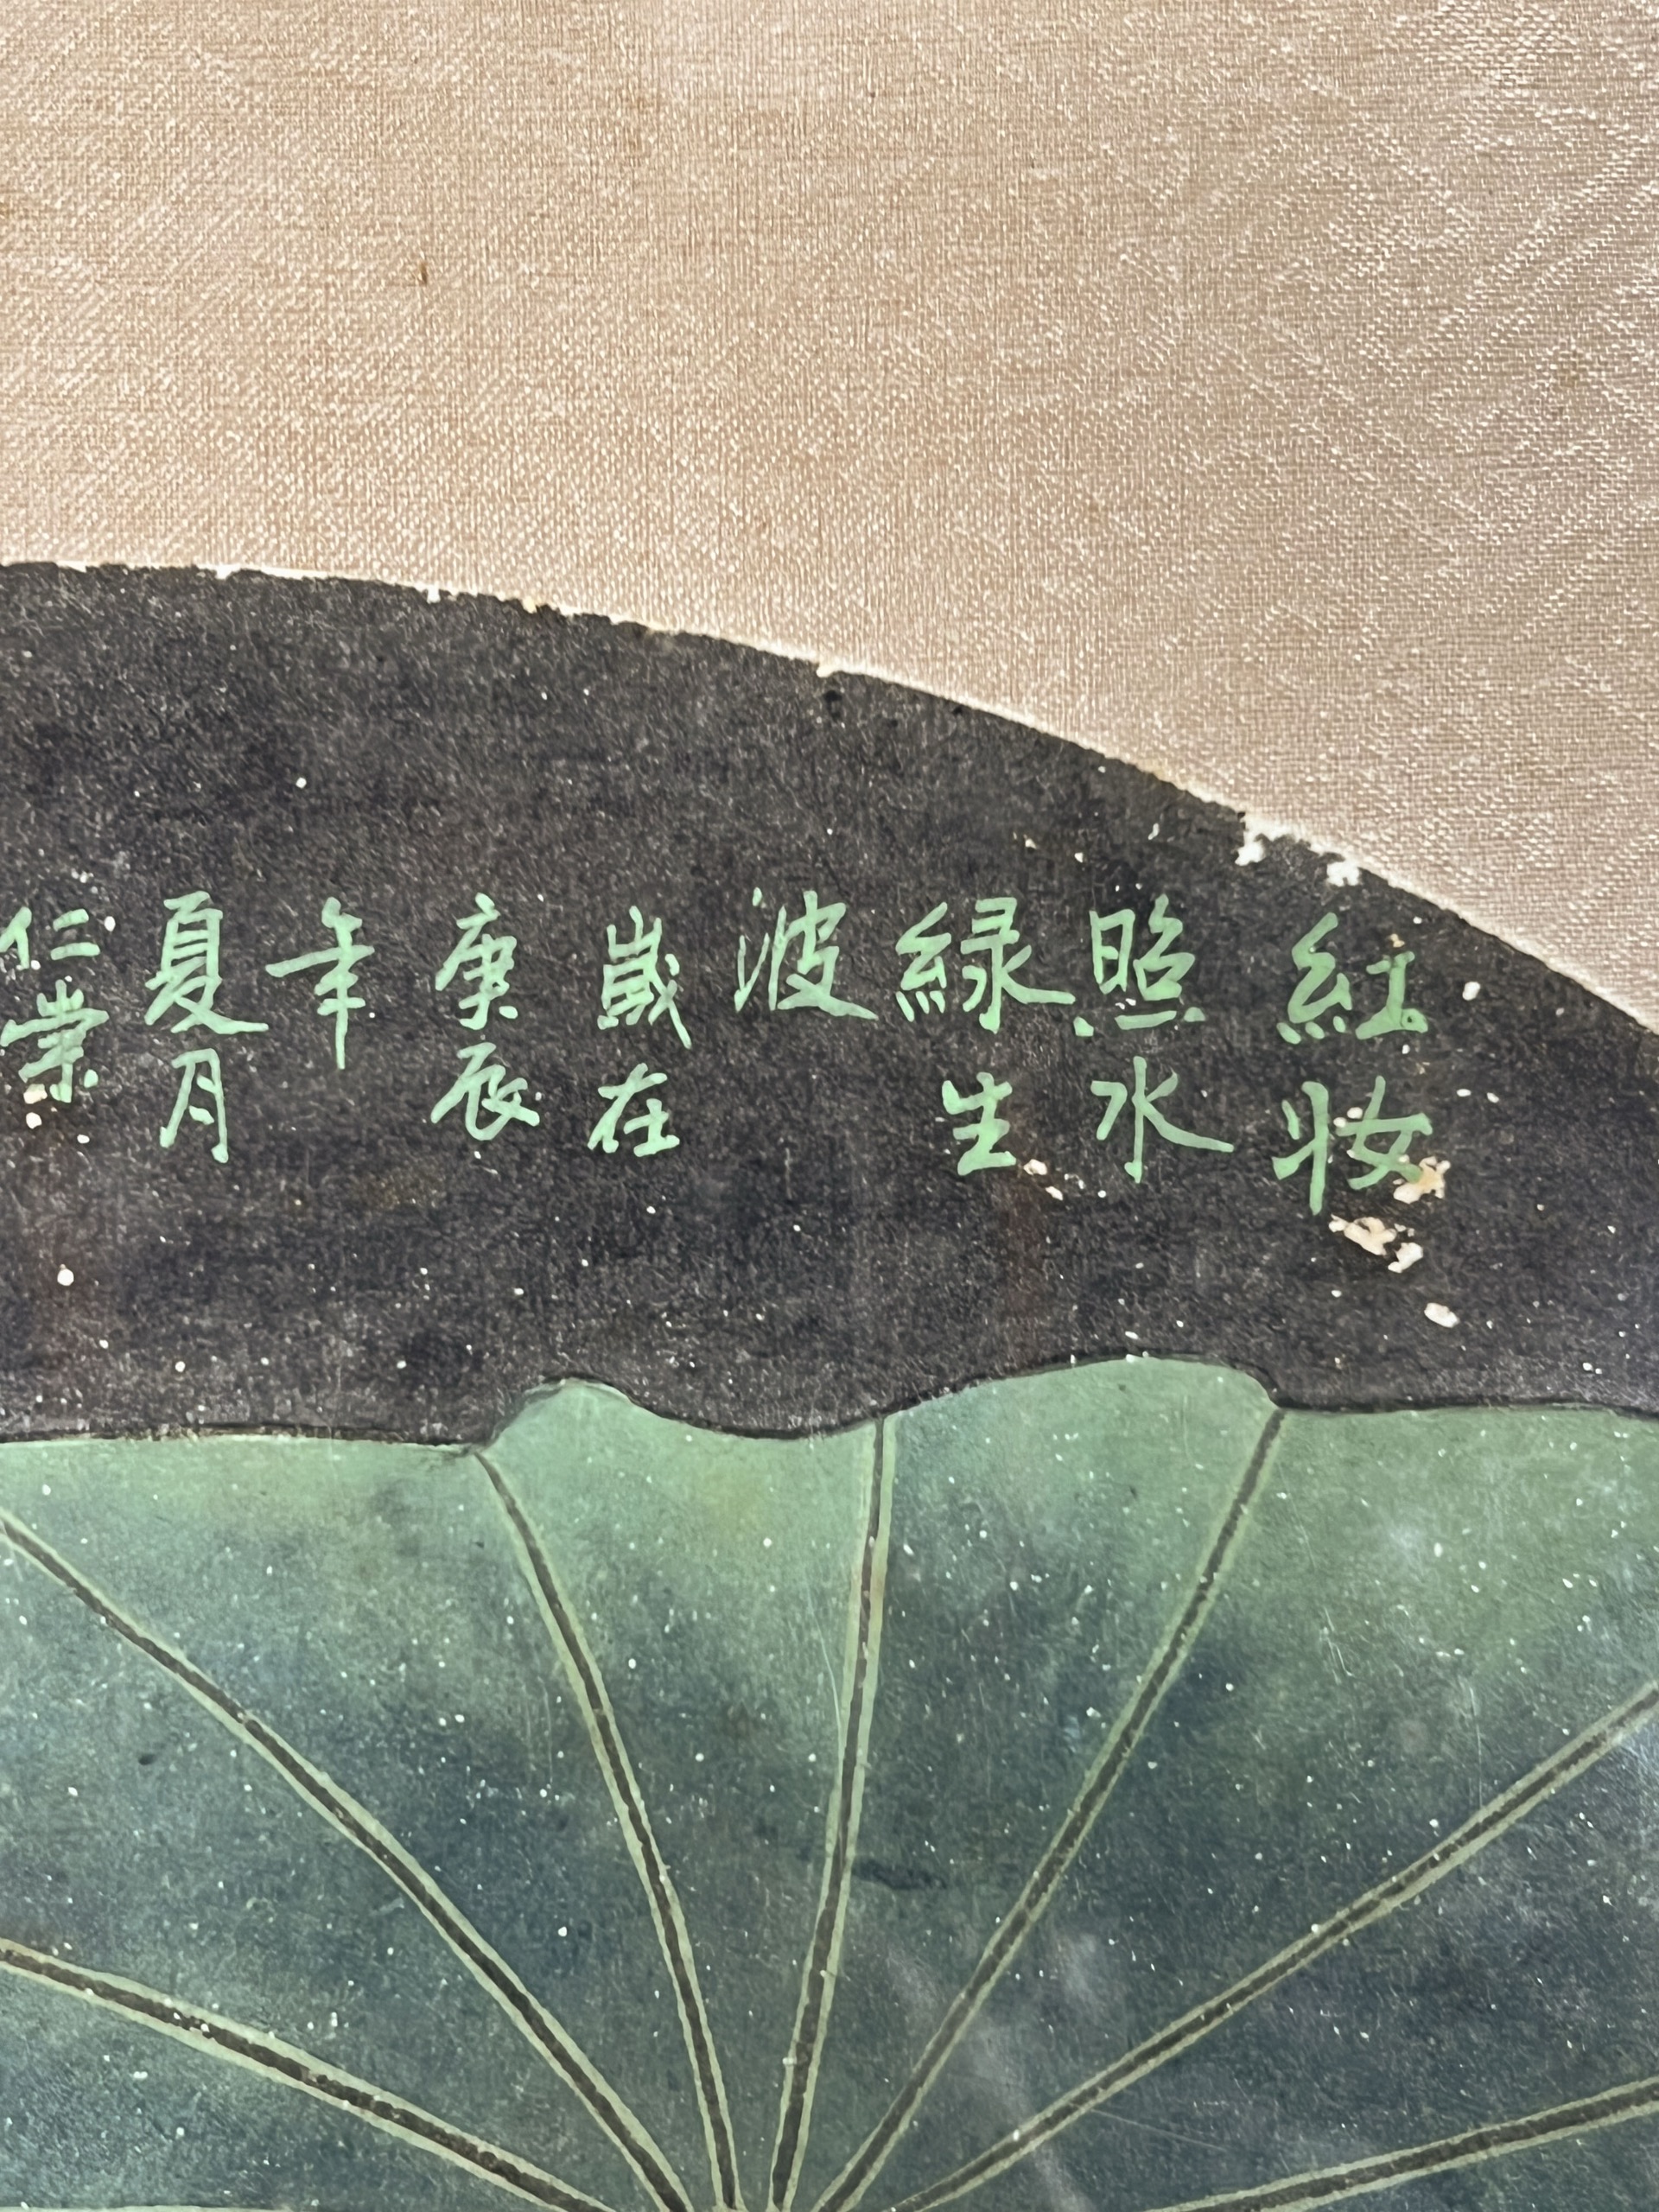 紅妝
照水
緑生
波
歲在
庚辰
年
夏月
仁棠